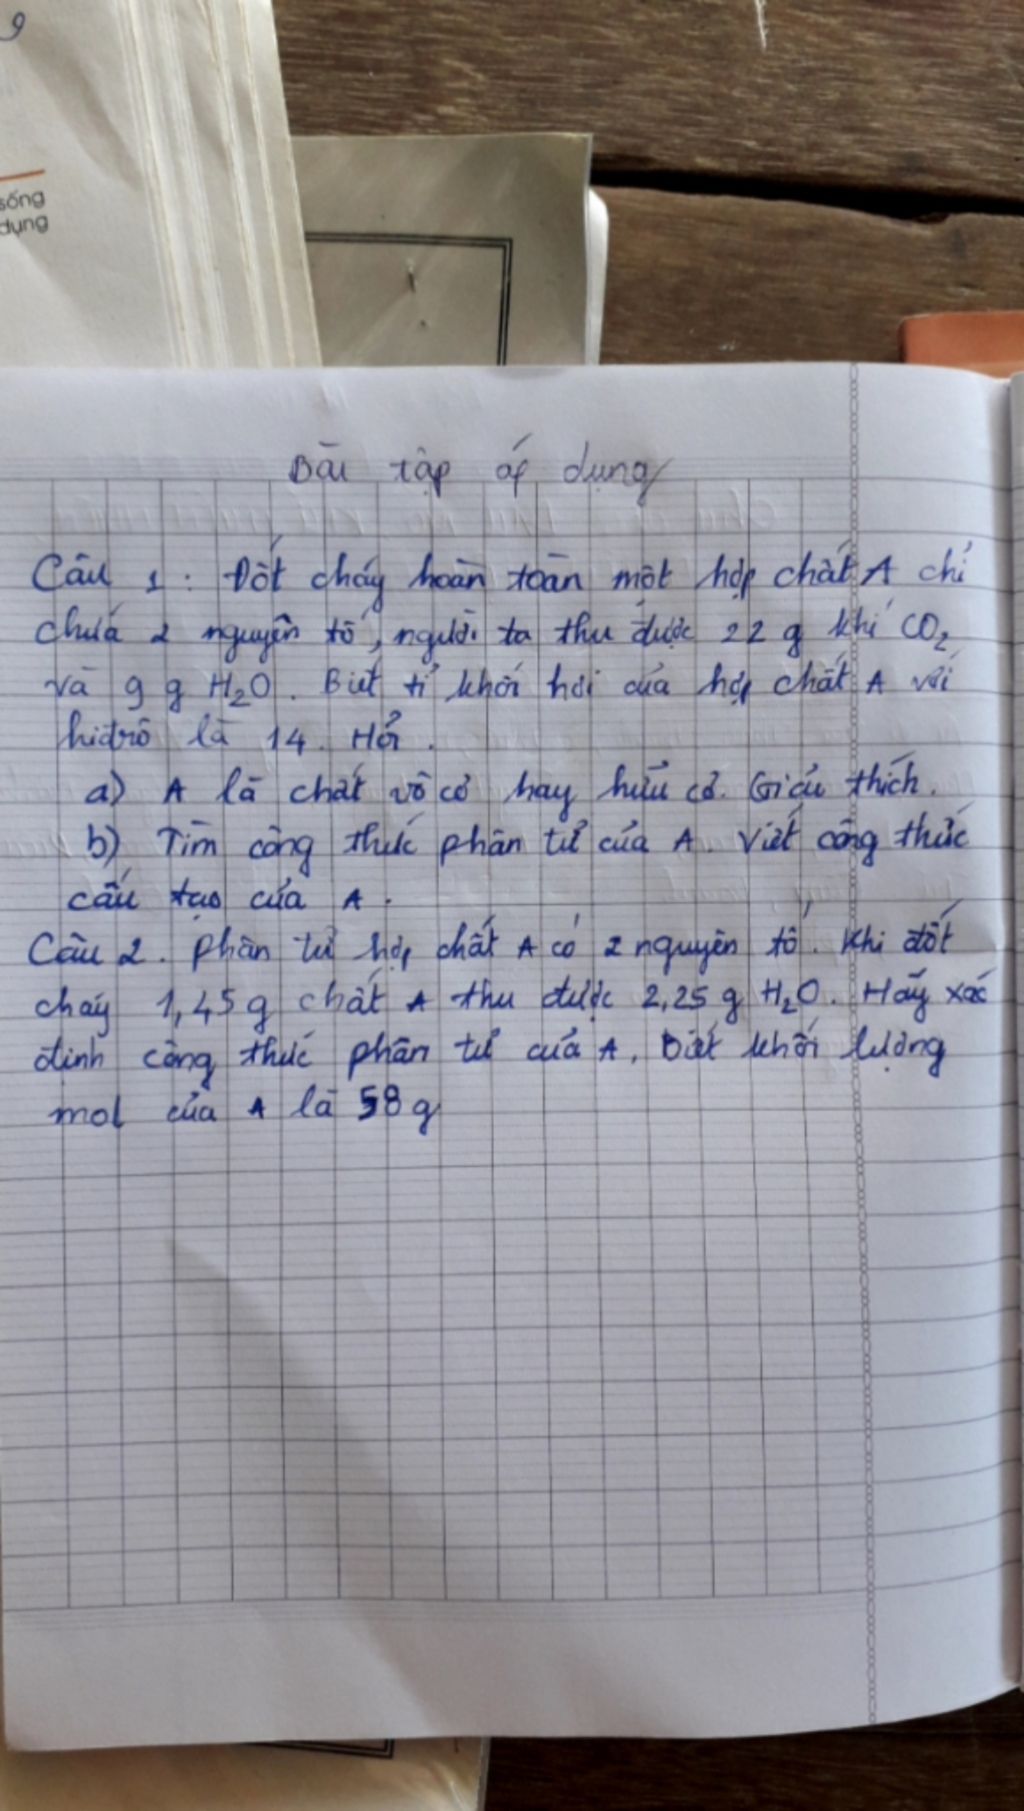 9
sống
dụng
Bài tập áp dụng
Câu 1: Đốt cháy hoàn toàn một hợp chất A chỉ
chứa 2 nguyên tố, người ta thu được 22 g khí CO2
và 9 g H2O. Biết tỉ khối hơi của hợp chất A với
hiđrô là 14. Hỏi.
a) A là chất vô cơ hay hữu cơ. Giải thích.
b) Tìm công thức phân tử của A. Viết công thức
cấu tạo của A.
Câu 2. Phân tử hợp chất A có 2 nguyên tố. Khi đốt
cháy 1,45g chất A thu được 2,25 g H2O. Hãy xác
định công thức phân tử của A, Biết khối lượng
mol của A là 58 g